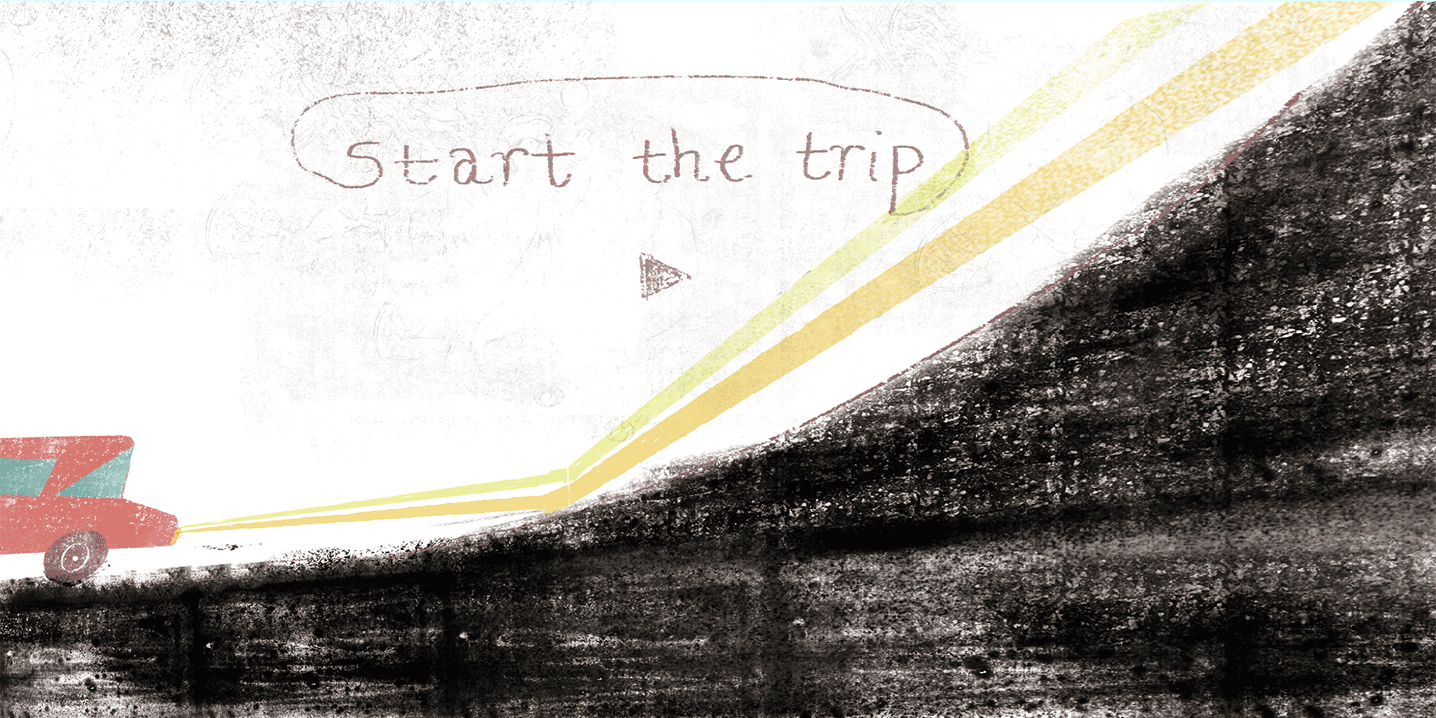 Start the trip